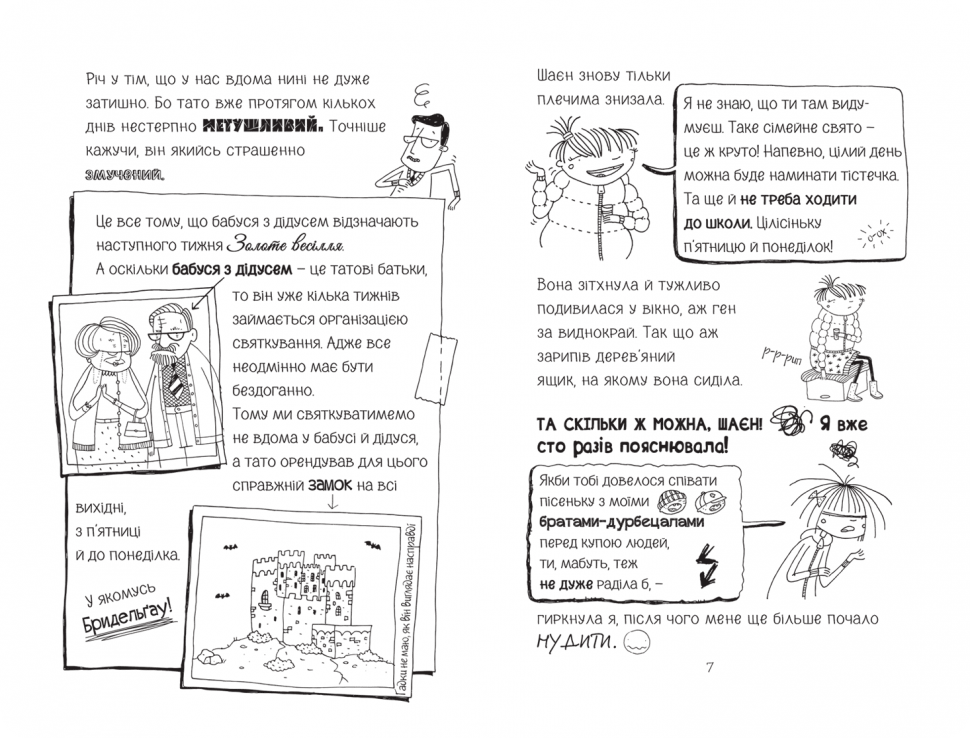 Річ у тім, що у нас вдома нині не дуже
затишно. Бо тато вже протягом кількох
днів нестерпно метушливий. Точніше
кажучи, він якийсь страшенно
змучений.
Це все тому, що бабуся з дідусем відзначають
наступного тижня Золоте весілля.
А оскільки бабуся з дідусем – це татові батьки,
то він уже кілька тижнів
займається організацією
святкування. Адже все
неодмінно має бути
бездоганно.
Тому ми святкуватимемо
не вдома у бабусі й дідуся,
а тато орендував для цього
справжній замок на всі
вихідні,
з п'ятниці
й до понеділка.
У якомусь
Бридельґау!
Гадки не маю, як він виглядає насправді
Шаєн знову тільки
плечима знизала.
Я не знаю, що ти там виду-
муєш. Таке сімейне свято –
це ж круто! Напевно, цілий день
можна буде наминати тістечка.
Та ще й не треба ходити
до школи. Цілісіньку
п'ятницю й понеділок!
о-ох
Вона зітхнула й тужливо
подивилася у вікно, аж ген
за виднокрай. Так що аж
зарипів дерев'яний
ящик, на якому вона сиділа.
р-р-рип
ТА СКІЛЬКИ Ж МОЖНА, ШАЄН! Я вже
сто разів пояснювала!
Якби тобі довелося співати
пісеньку з моїми
братами-дурбецалами
перед купою людей,
ти, мабуть, теж
не дуже раділа б, –
гиркнула я, після чого мене ще більше почало
НУДИТИ.
7